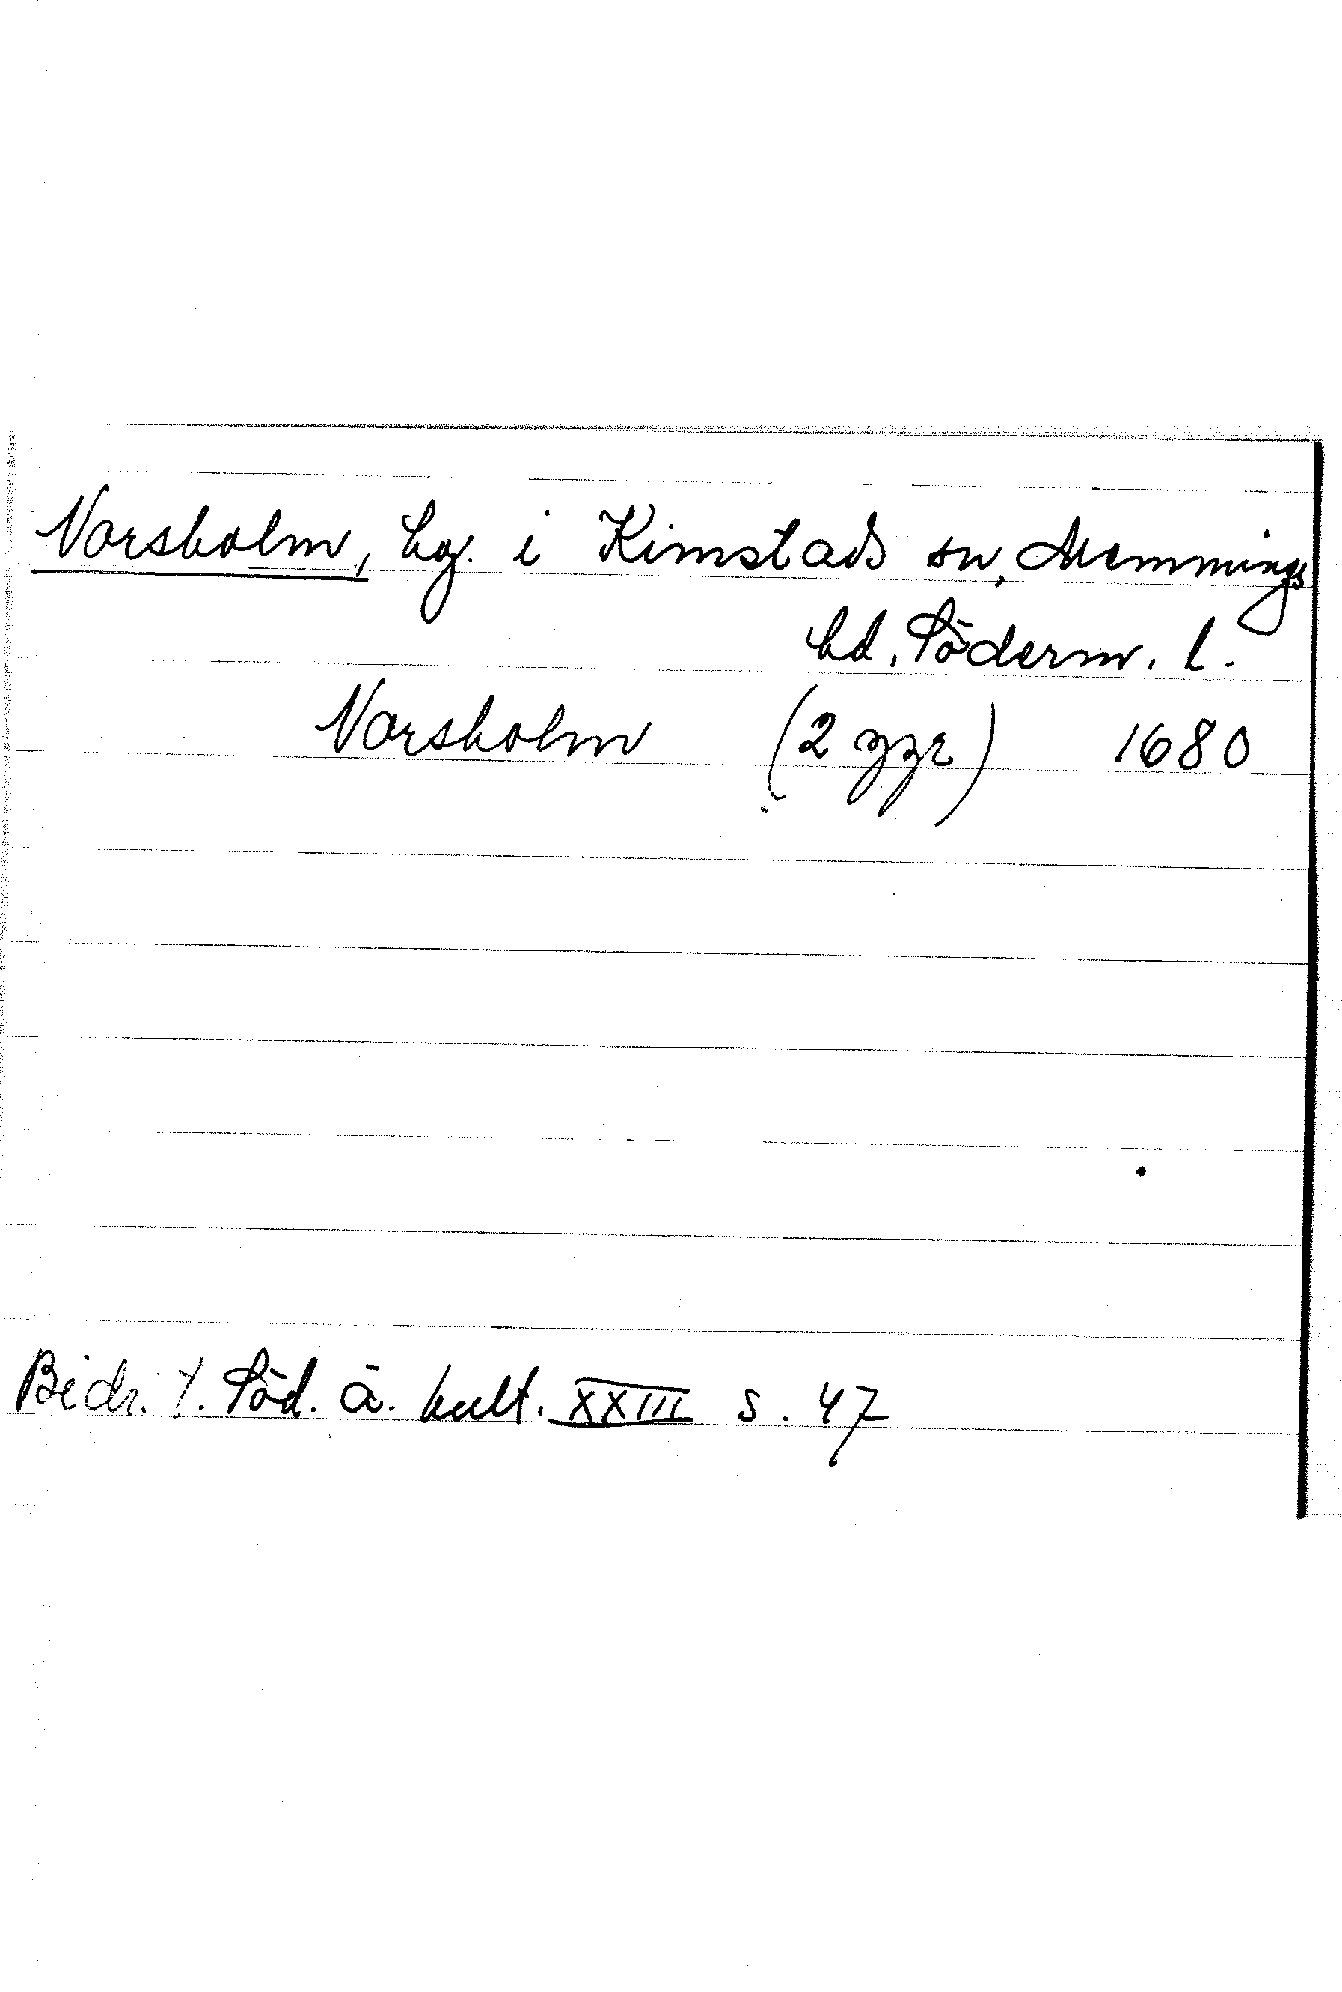 Norsholm, hg. i Kimstads sn, Memmings
hd, Söderm. l.
Norsholm (2 ggr) 1680
Bidr. t. Söd. ä. kult. XXIII s. 47